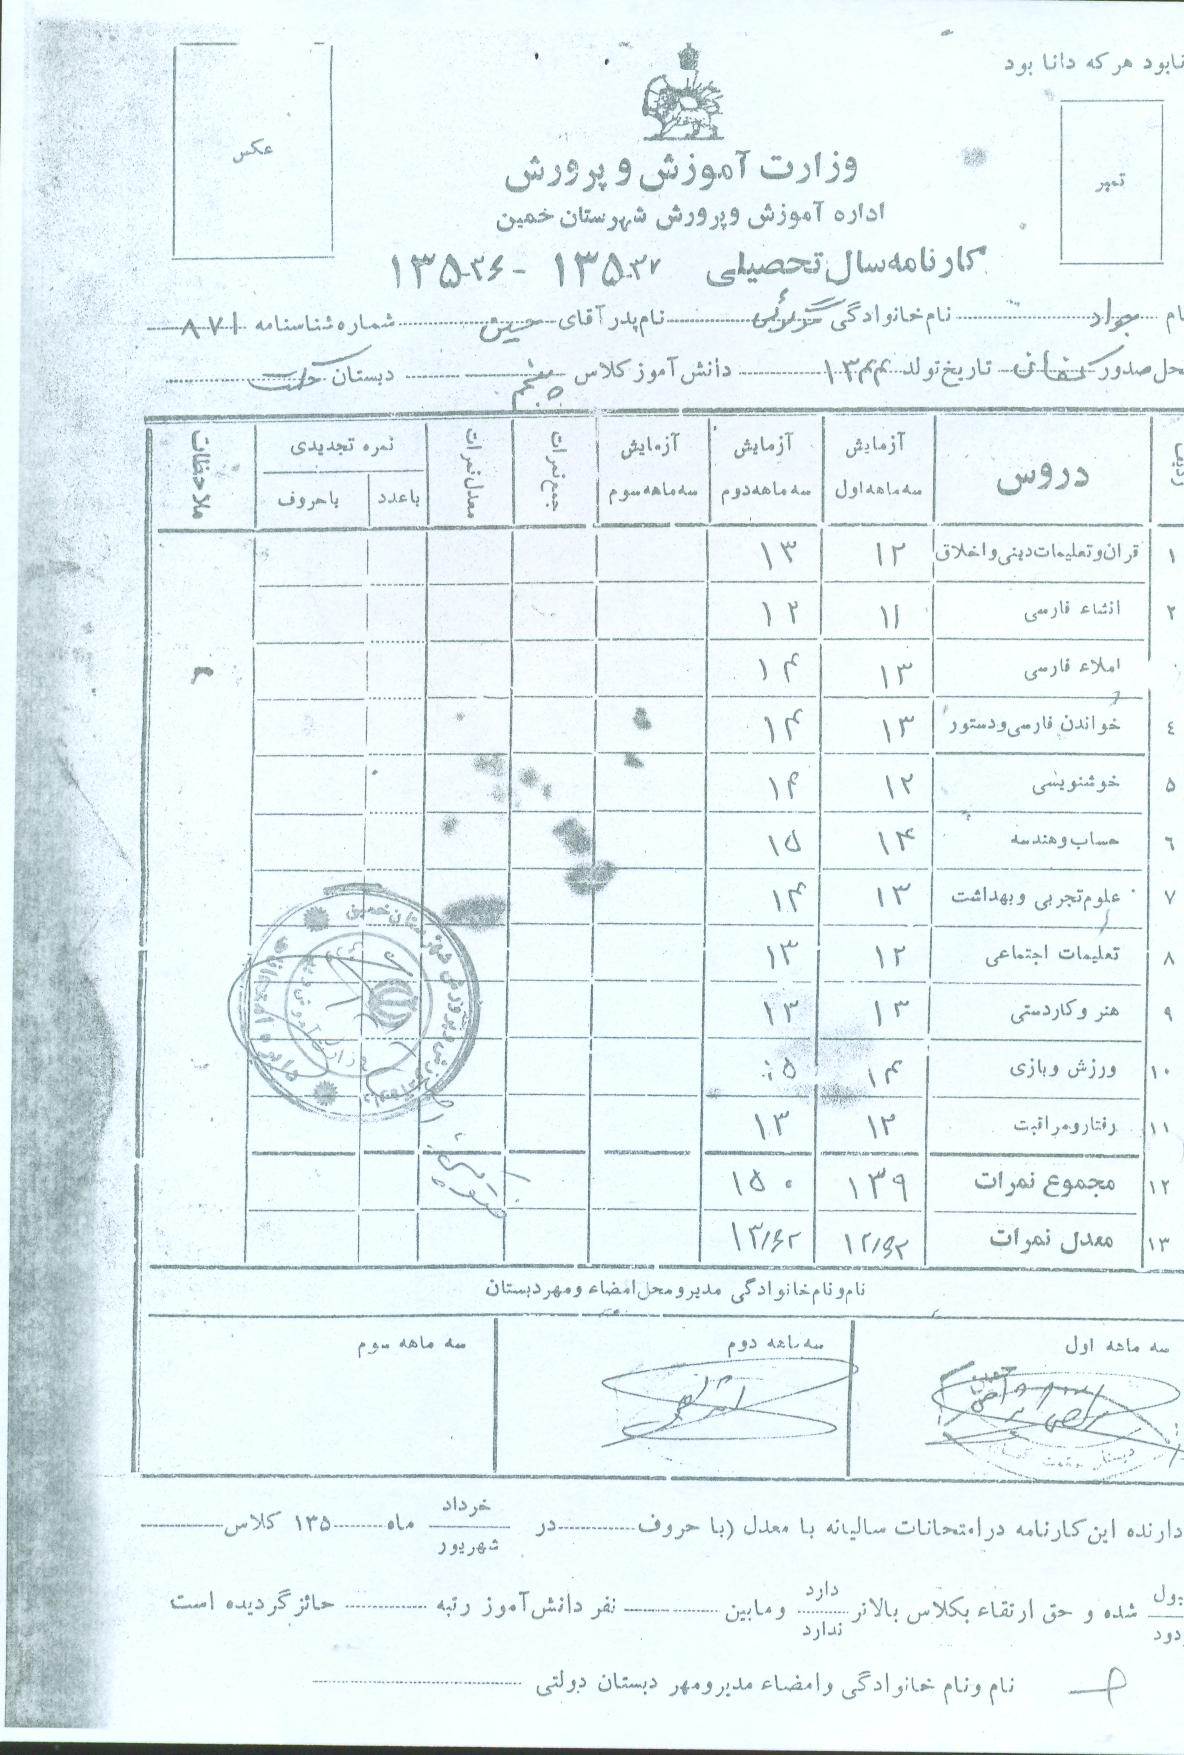 نابود هر که دانا بود
عکس
تمبر
وزارت آموزش و پرورش
اداره آموزش و پرورش شهرستان خمین
کارنامه سال تحصیلی ۱۳۵۳۷ - ۱۳۵۳۶
ام جواد نام خانوادگی نام پدر آقای حسین شماره شناسنامه ۸۷۱
حل صدور تاریخ تولد ۱۳۴۴ دانش آموز کلاس پنجم دبستان
ردیف دروس آزمایش سه ماهه اول آزمایش سه ماهه دوم آزمایش سه ماهه سوم جمع نمرات معدل نمرات نمره تجدیدی باعدد باحروف ملاحظات
۱ قران و تعلیمات دینی و اخلاق ۱۲ ۱۳
۲ انشاء فارسی ۱۱ ۱۲
املاء فارسی ۱۳ ۱۴
٤ خواندن فارسی و دستور ۱۳ ۱۴
۵ خوشنویسی ۱۲ ۱۴
٦ حساب و هندسه ۱۴ ۱۵
۷ علوم تجربی و بهداشت ۱۳ ۱۴
۸ تعلیمات اجتماعی ۱۲ ۱۳
۹ هنر و کاردستی ۱۳ ۱۳
۱۰ ورزش و بازی ۱۴ ۱۵
۱۱ رفتار و مراقبت ۱۲ ۱۳
۱۲ مجموع نمرات ۱۳۹ ۱۵۰
۱۳ معدل نمرات ۱۲/۶۲ ۱۳/۶۲
نام و نام خانوادگی مدیر و محل امضاء و مهر دبستان
سه ماهه اول سه ماهه دوم سه ماهه سوم
دارنده این کارنامه در امتحانات سالیانه با معدل (با حروف در خرداد شهریور ماه ۱۳۵ کلاس
شده و حق ارتقاء بکلاس بالاتر دارد ندارد و مابین نفر دانش آموز رتبه حائز گردیده است
نام و نام خانوادگی و امضاء مدیر و مهر دبستان دولتی